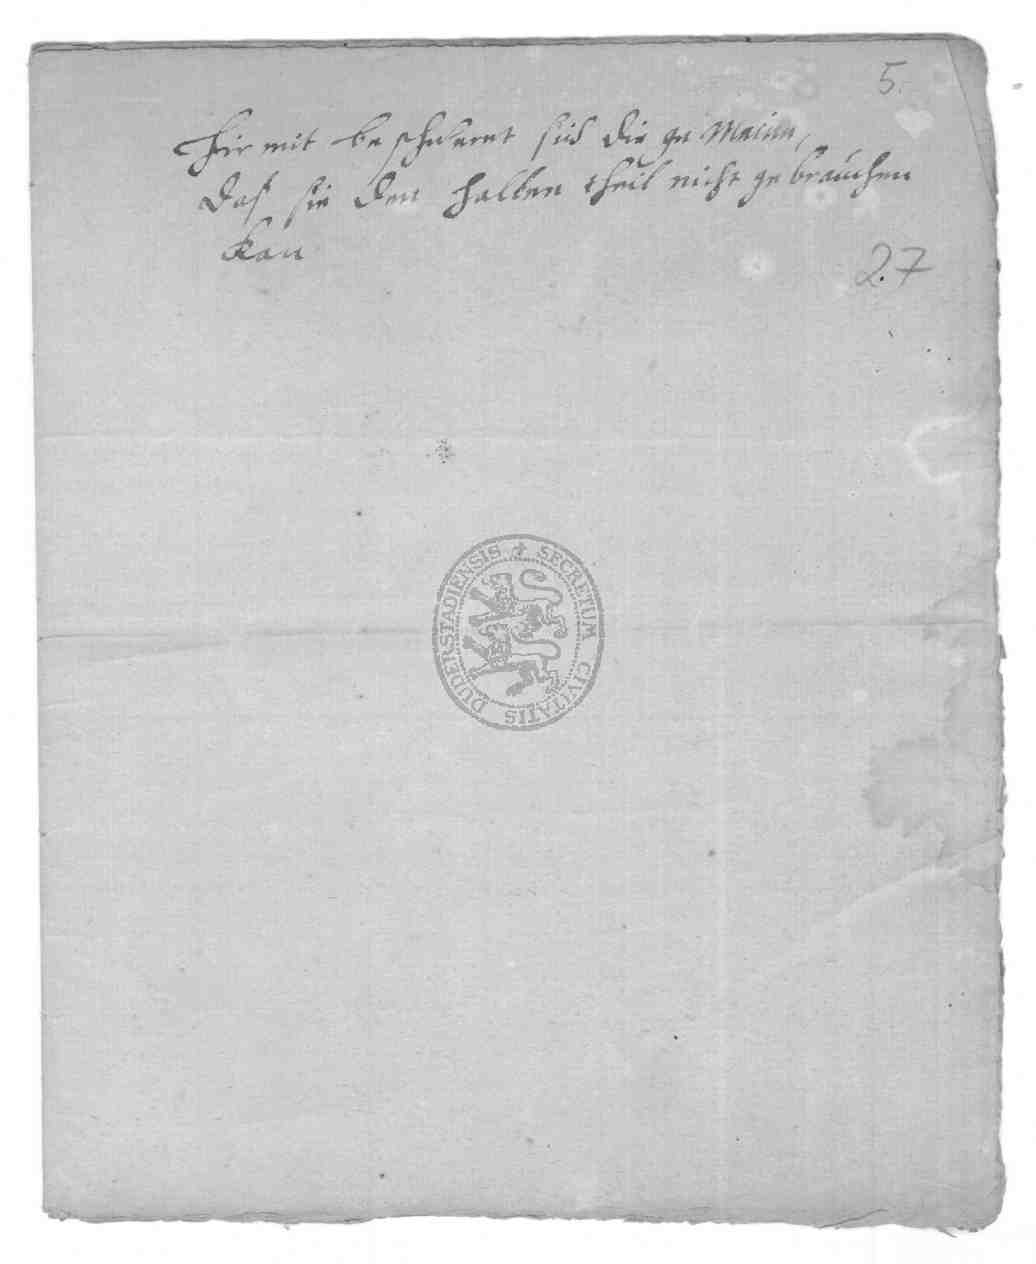 5.
Hir mit be schwert sich die ge Mein,
Das sie den halben theil nicht gebrauchen
kan
27
SECRETUM CIVITATIS DUDERSTADIENSIS